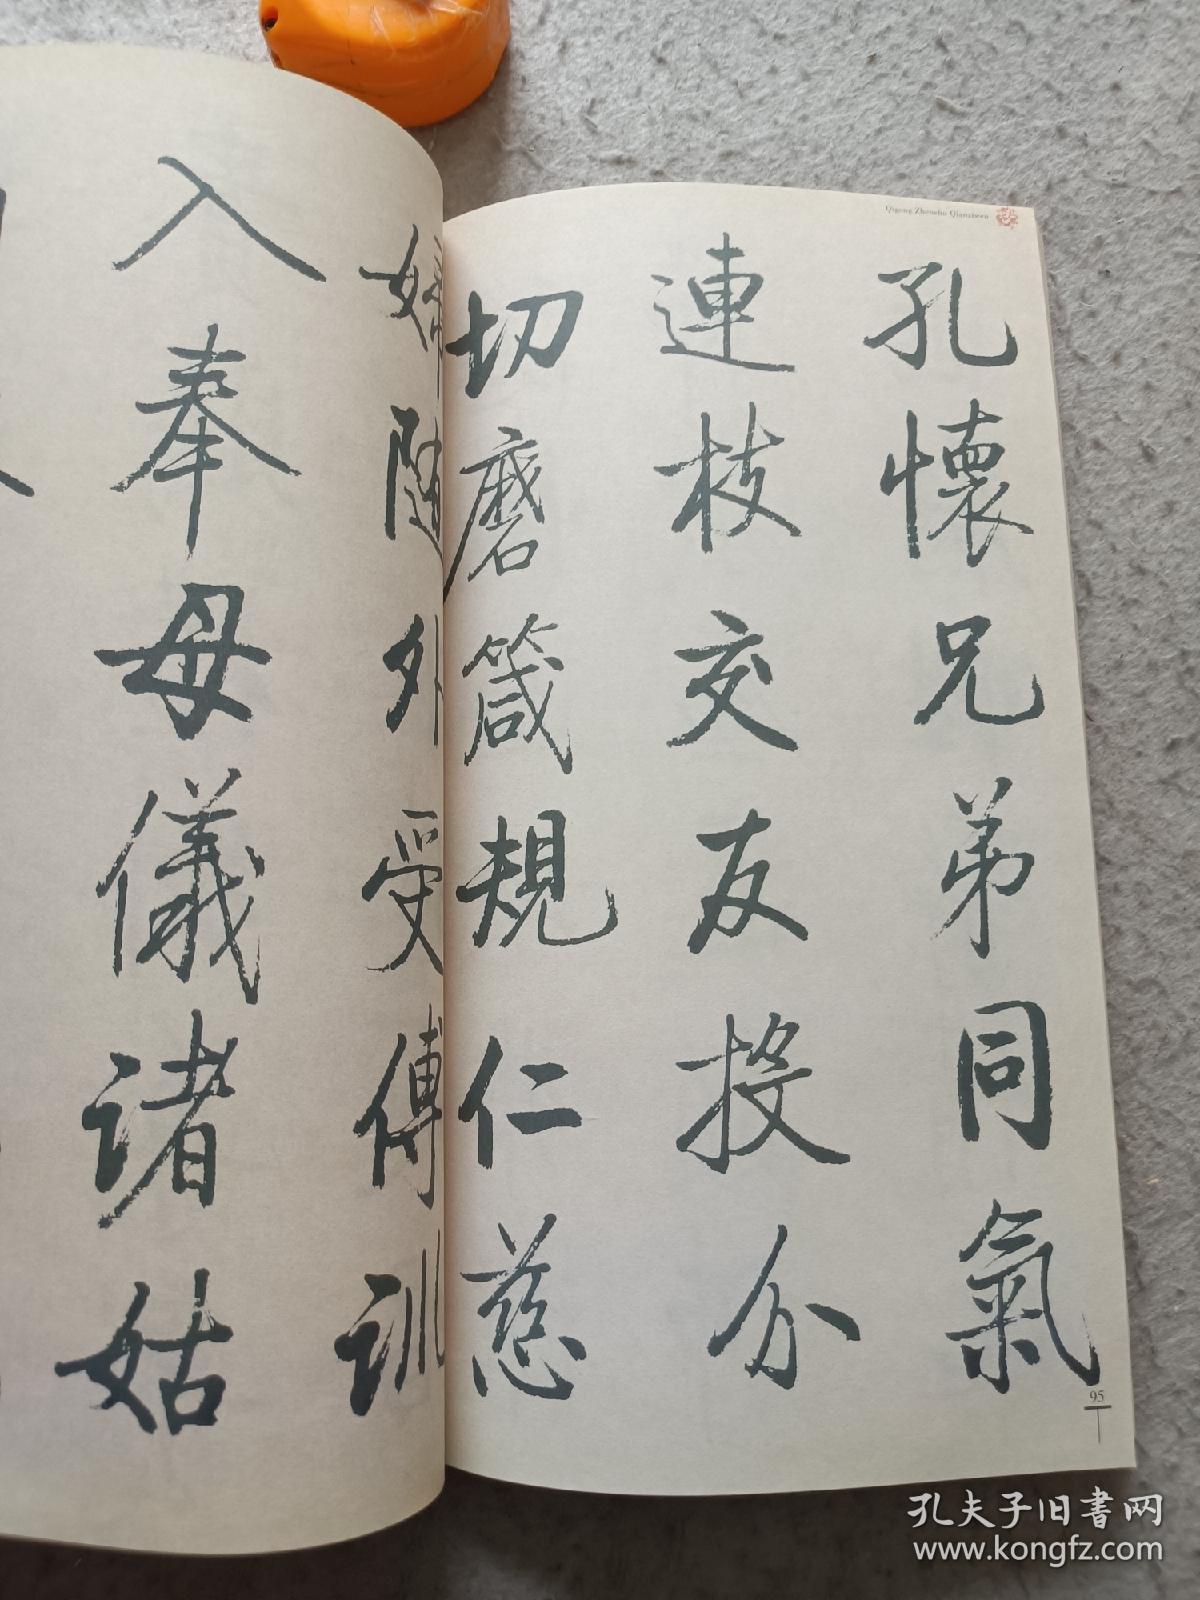 婦随外受傅訓
入奉母儀諸姑
Qigong Zhenshu Qianziwen
孔懷兄弟同氣
連枝交友投分
切磨箴規仁慈
95
孔夫子旧書网
www.kongfz.com